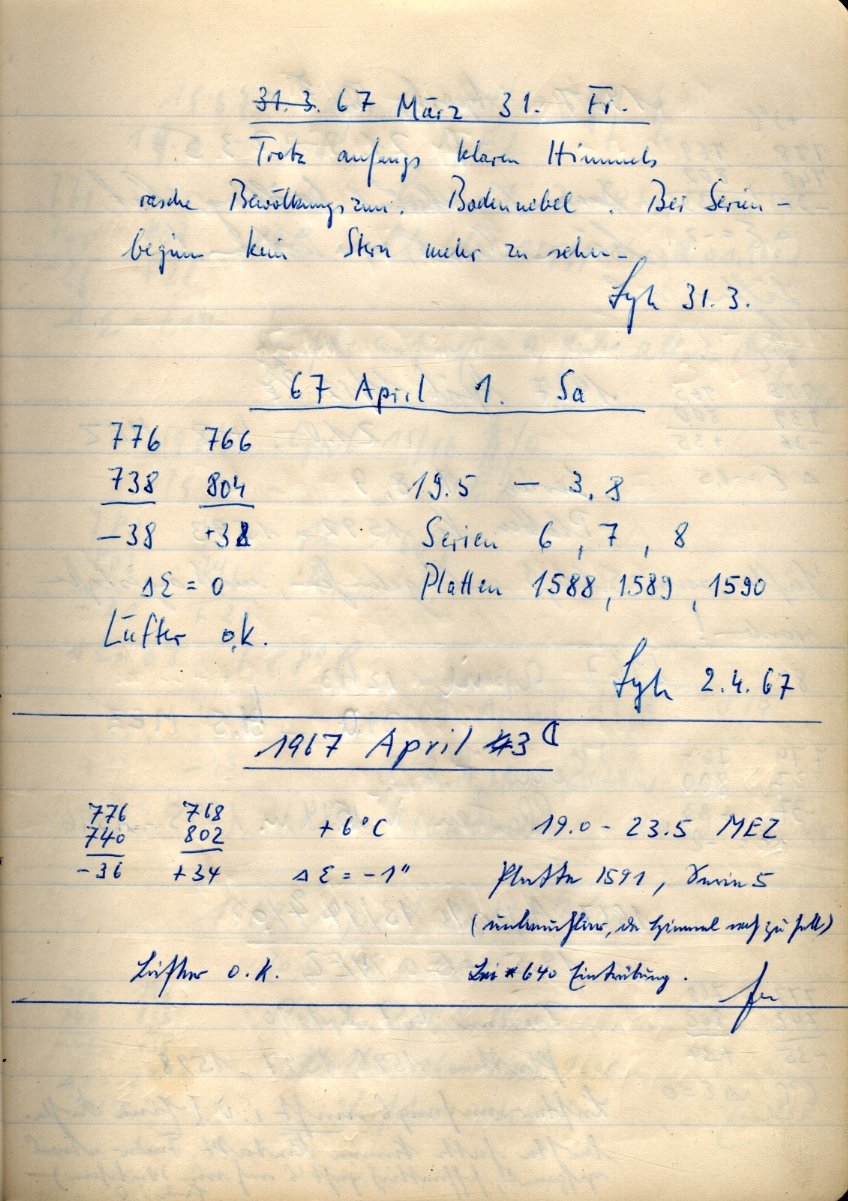 31.3. 67 März 31. Fr.
Trotz anfangs klaren Himmels
rasche Bewölkungszun. Bodennebel. Bei Serien-
beginn kein Stern mehr zu sehen.
31.3.
67 April 1. Sa
776 766
738 804 19.5 — 3.8
-38 +38 Serien 6, 7, 8
ΔΣ = 0 Platten 1588, 1589, 1590
Lüfter o.k.
2.4.67
1967 April 3 ☾
776 768
740 802 +6°C 19.0 - 23.5 MEZ
-36 +34 ΔΣ = -1" Platte 1591, Serie 5
(unbrauchbar, da Himmel noch zu hell)
Lüfter o.k. Bei *640 Eintrübung.